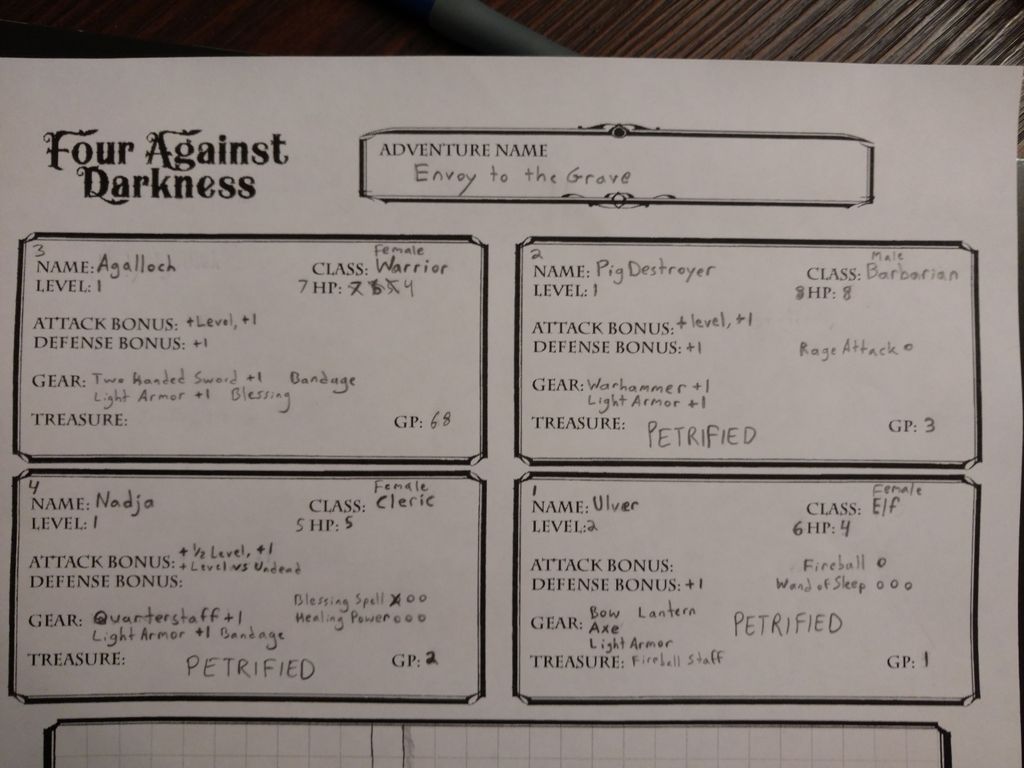 Four Against
Darkness
ADVENTURE NAME
Envoy to the Grave
3
Female
NAME: Agalloch CLASS: Warrior
LEVEL: 1 7 HP: 4
ATTACK BONUS: +Level, +1
DEFENSE BONUS: +1
GEAR: Two Handed Sword +1 Bandage
Light Armor +1 Blessing
TREASURE: GP: 68
2
Male
NAME: Pig Destroyer CLASS: Barbarian
LEVEL: 1 8 HP: 8
ATTACK BONUS: +level, +1
DEFENSE BONUS: +1 Rage Attack o
GEAR: Warhammer +1
Light Armor +1
TREASURE: PETRIFIED GP: 3
4
Female
NAME: Nadja CLASS: Cleric
LEVEL: 1 5 HP: 5
ATTACK BONUS: +½ Level, +1
+Level vs Undead
DEFENSE BONUS:
Blessing Spell x o o
GEAR: Quarterstaff +1 Healing Power o o o
Light Armor +1 Bandage
TREASURE: PETRIFIED GP: 2
1
Female
NAME: Ulver CLASS: Elf
LEVEL: 2 6 HP: 4
ATTACK BONUS: Fireball o
DEFENSE BONUS: +1 Wand of Sleep o o o
GEAR: Bow Lantern
Axe PETRIFIED
Light Armor
TREASURE: Fireball Staff GP: 1